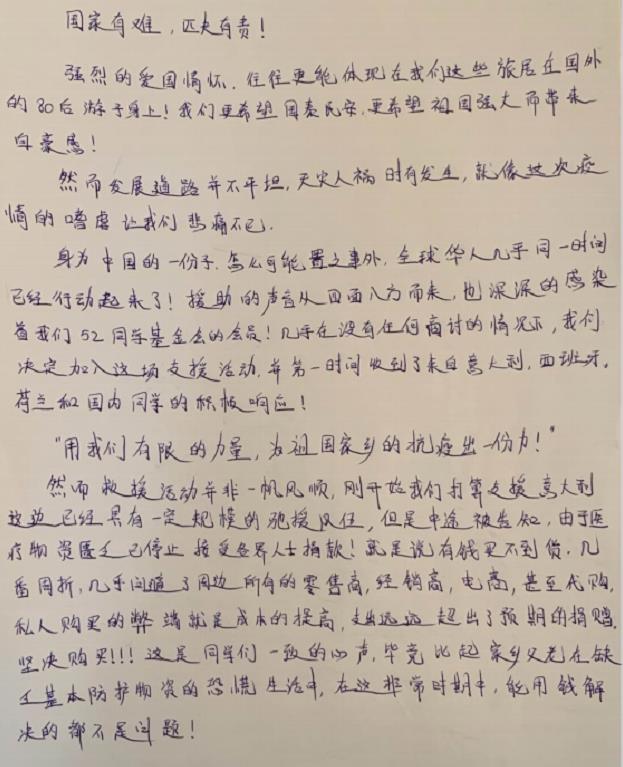 国家有难，匹夫有责！
强烈的爱国情怀，往往更能体现在我们这些旅居在国外
的80后游子身上！我们更希望国泰民安，更希望祖国强大而带来
自豪感！
然而发展道路并不平坦，天灾人祸时有发生，就像这次疫
情的嗜虐让我们悲痛不已.
身为中国的一份子，怎么可能置之事外，全球华人几乎同一时间
已经行动起来了！援助的声音从四面八方而来，也深深的感染
着我们52同学基金会的会员！几乎在没有任何商讨的情况下，我们
决定加入这场支援活动，并第一时间收到了来自意大利，西班牙，
荷兰和国内同学的积极响应！
"用我们有限的力量，为祖国家乡的抗疫出一份力！"
然而救援活动并非一帆风顺，刚开始我们打算支援意大利
这边已经具有一定规模的驰援队伍，但是中途被告知，由于医
疗物资匮乏已停止接受各界人士捐款！就是说有钱买不到货，几
番周折，几乎问遍了周边所有的零售商，经销商，电商，甚至代购，
私人购买的弊端就是成本的提高，支出远远超出了预期的捐赠，
坚决购买!!! 这是同学们一致的心声，毕竟比起家乡父老在缺
乏基本防护物资的恐慌生活中，在这非常时期中，能用钱解
决的都不是问题！